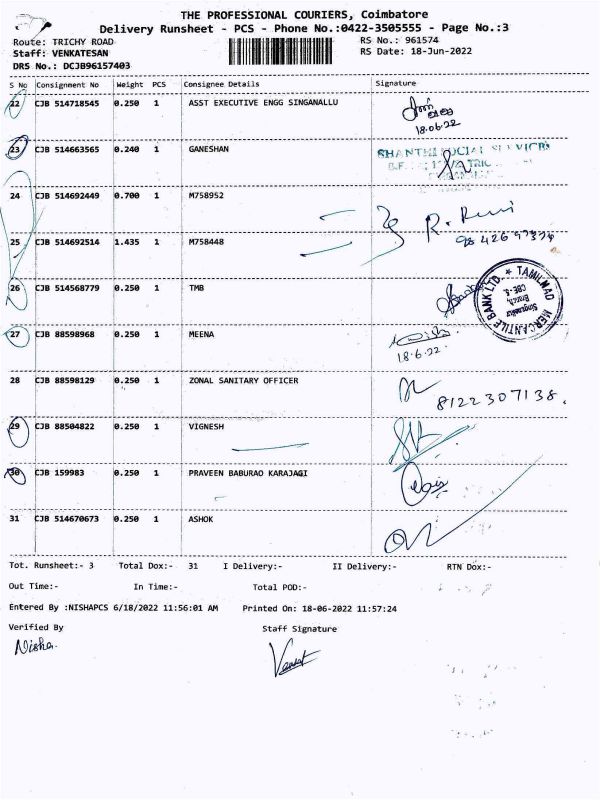 THE PROFESSIONAL COURIERS, Coimbatore
Delivery Runsheet - PCS - Phone No.:0422-3505555 - Page No.:3
Route: TRICHY ROAD RS No.: 961574
Staff: VENKATESAN RS Date: 18-Jun-2022
DRS No.: DCJB96157403
S No Consignment No Weight PCS Consignee Details Signature
22 CJB 514718545 0.250 1 ASST EXECUTIVE ENGG SINGANALLU
18.06.22
23 CJB 514663565 0.240 1 GANESHAN SHANTHI SOCIAL SERVICES
24 CJB 514692449 0.700 1 M758952
25 CJB 514692514 1.435 1 M758448
26 CJB 514568779 0.250 1 TMB
TAMILNAD MERCANTILE BANK LTD.
Branch,
CBE-5.
27 CJB 88598968 0.250 1 MEENA
18.6.22.
28 CJB 88598129 0.250 1 ZONAL SANITARY OFFICER
8122307138.
29 CJB 88504822 0.250 1 VIGNESH
30 CJB 159983 0.250 1 PRAVEEN BABURAO KARAJAGI
31 CJB 514670673 0.250 1 ASHOK
Tot. Runsheet:- 3 Total Dox:- 31 I Delivery:- II Delivery:- RTN Dox:-
Out Time:- In Time:- Total POD:-
Entered By :NISHAPCS 6/18/2022 11:56:01 AM Printed On: 18-06-2022 11:57:24
Verified By Staff Signature
Nisha. Venkat